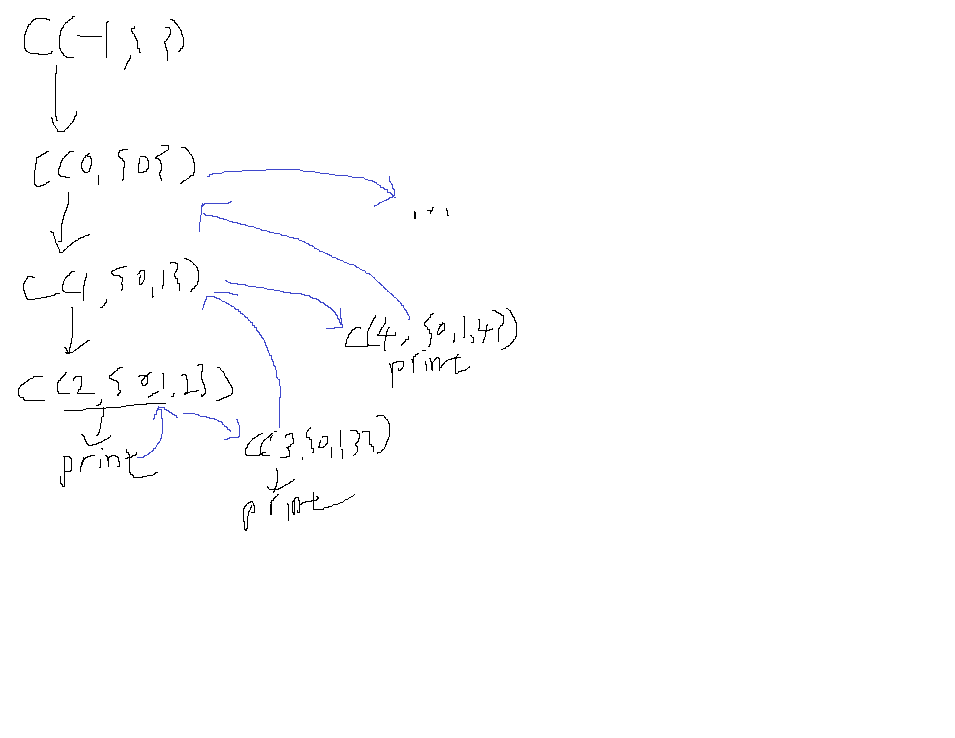 C(-1,{ })
C(0,{0})
...
C(1,{0,1})
C(4,{0,1,4})
print
C(2,{0,1,2})
print
C(3,{0,1,3})
print